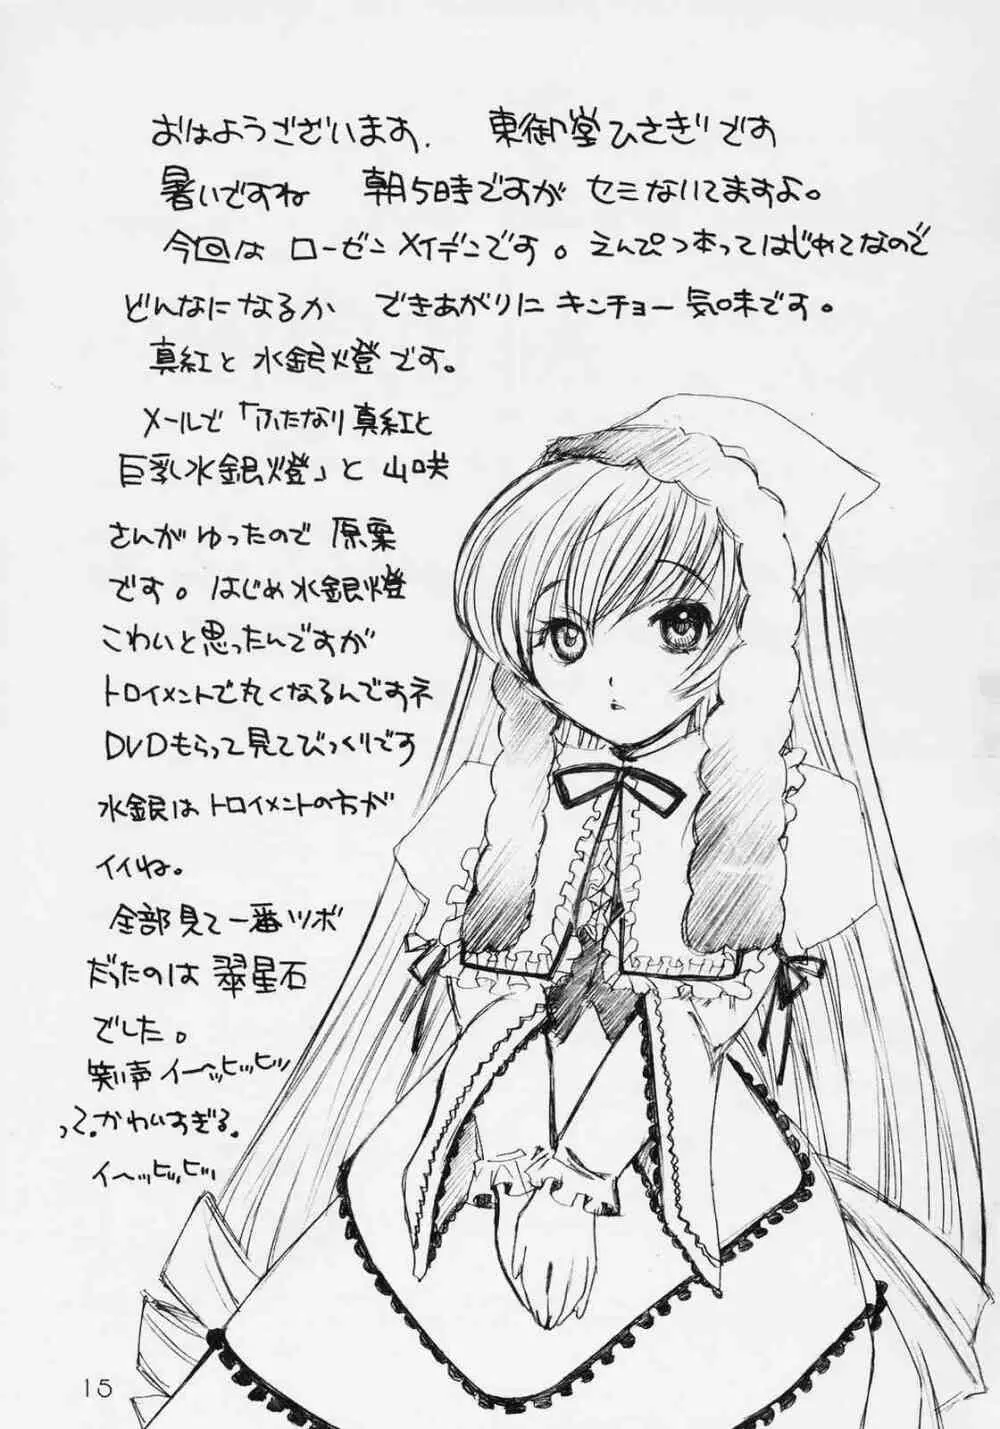 おはようございます. 東御堂ひさぎです
暑いですね 朝5時ですが セミないてますよ。
今回は ローゼンメイデンです。えんぴつ本ってはじめてなので
どんなになるか できあがりに キンチョー気味です。
真紅と 水銀燈です。
メールで「ふたなり真紅と
巨乳水銀燈」と 山咲
さんが ゆったので 原案
です。はじめ水銀燈
こわいと思ったんですが
トロイメントで丸くなるんですネ
DVDもらって見てびっくりです
水銀はトロイメントの方が
イイね。
全部見て一番ツボ
だったのは 翠星石
でした。
笑い声 イ〜ッヒッヒッヒッ
って。かわいすぎる。
イ〜ッヒッヒッヒッ
15